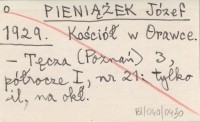 o PIENIĄŻEK Józef
1929. Kościół w Orawce.
– Tęcza (Poznań) 3,
półrocze I, nr 21: tylko
il. na okł.